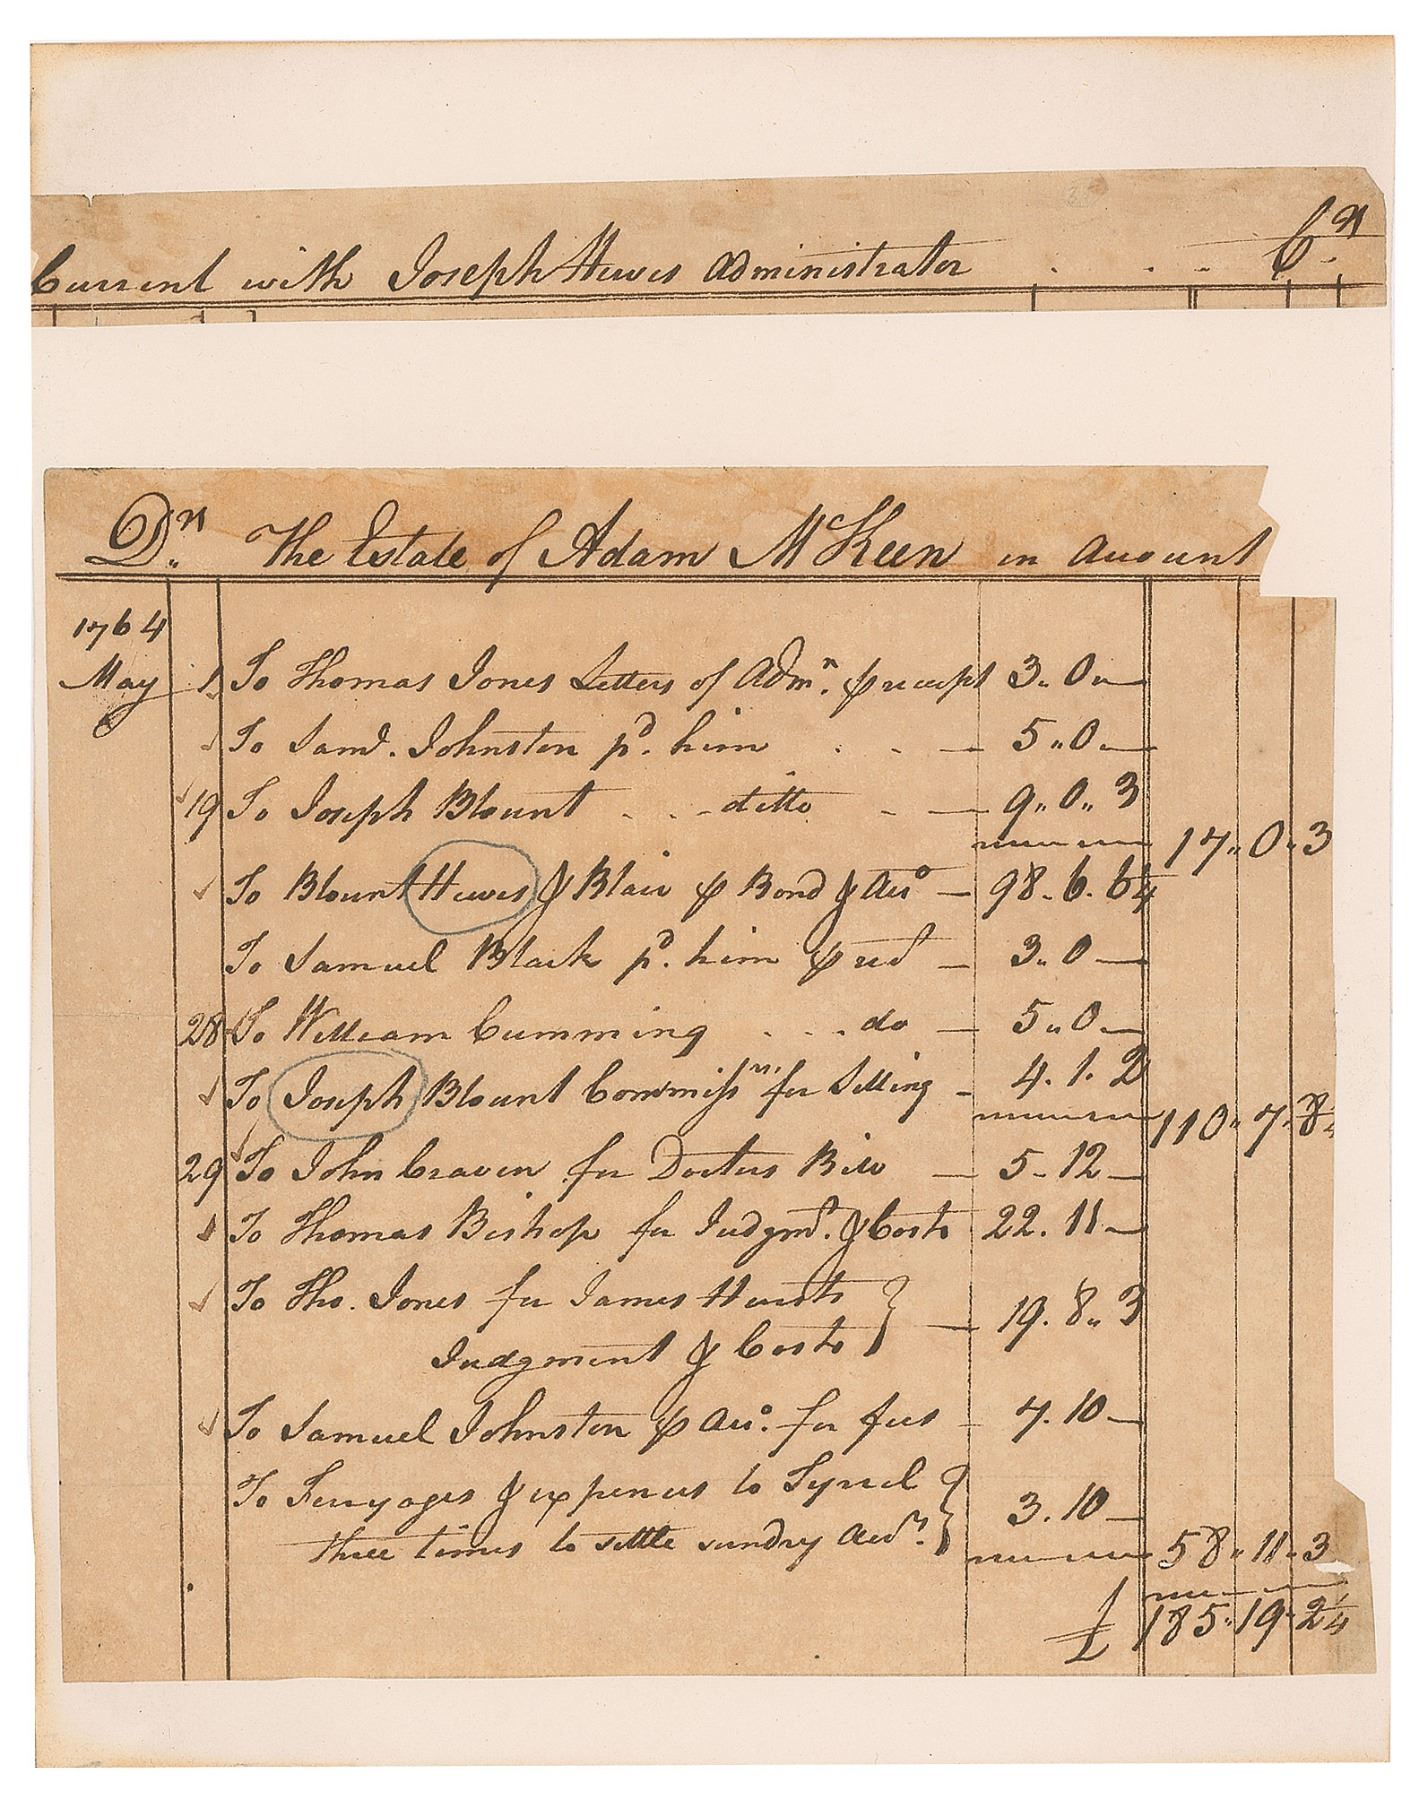 Current with Joseph Hewes Administrator . . . Cr.
Dr. The Estate of Adam McKeen in Account
1764
May 1. To Thomas Jones Letters of Admn. ⅌ receipt 3 „ 0 „ —
To Saml. Johnston pd. him . . — 5 „ 0 „ —
19 To Joseph Blount . . ditto . — 9 „ 0 „ 3
17 „ 0 „ 3
To Blount Hewes & Blair ⅌ Bond & Acco — 98 . 6 . 6¼
To Samuel Black pd. him ⅌ rect — 3 „ 0 —
28 To William Cumming . . . do — 5 „ 0 —
To Joseph Blount Commissrs. for Setting — 4 . 1 . 2
110 „ 7 „ 8¼
29 To John Craven for Doctors Bill — 5 - 12 —
To Thomas Bishop for Judgmt. & Costs 22 . 11 —
To Tho. Jones for James Hursts } — 19 . 8 „ 3
Judgment & Costs
To Samuel Johnston ⅌ Acco. for fees — 7 . 10 —
To Ferryages & expences to Tyrrel } 3 . 10 —
three times to settle sundry Accts.
58 „ 11 „ 3
£ 185 „ 19 „ 2¼